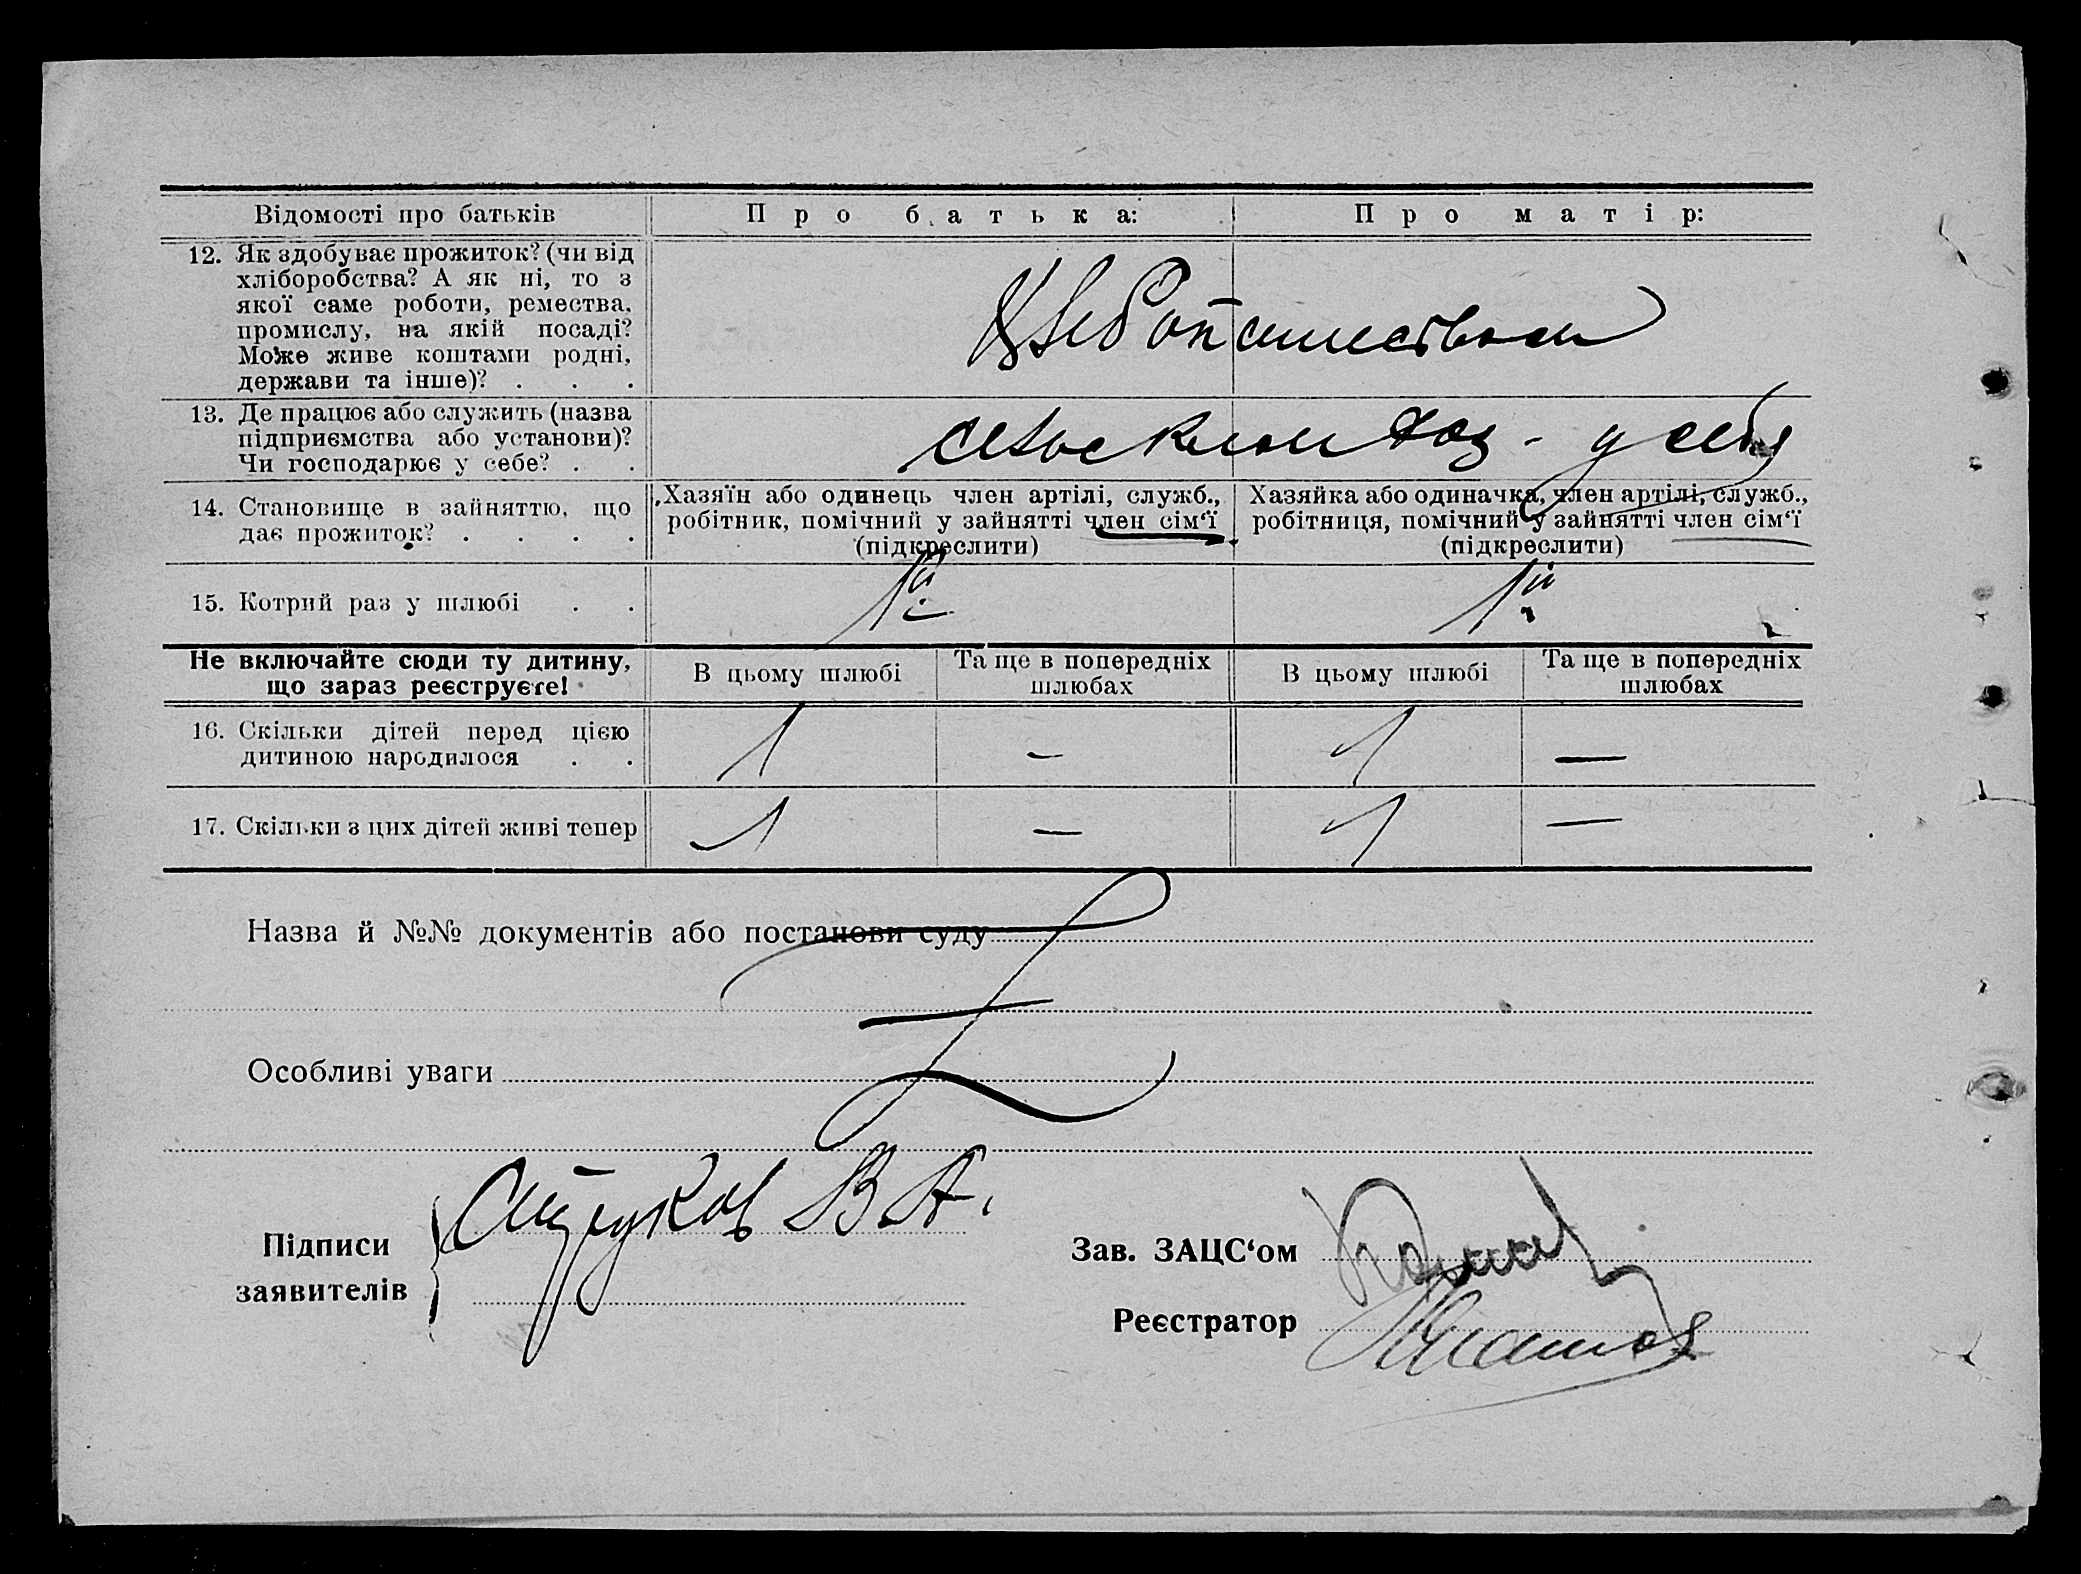 Відомості про батьків
Про батька:
Про матір:
12. Як здобуває прожиток? (чи від
хліборобства? А як ні, то з
якої саме роботи, ремества,
промислу, на якій посаді?
Може живе коштами родні,
держави та інше)? . . .
Хлебопашеством
13. Де працює або служить (назва
підприємства або установи)?
Чи господарює у себе? . .
сельском хоз - у себя
14. Становище в зайняттю, що
дає прожиток? . . . .
Хазяїн або одинець член артілі, служб.,
робітник, помічний у зайнятті член сім'ї
(підкреслити)
Хазяйка або одиначка, член артілі, служб.,
робітниця, помічний у зайнятті член сім'ї
(підкреслити)
15. Котрий раз у шлюбі . .
1й
1й
Не включайте сюди ту дитину,
що зараз реєструєте!
В цьому шлюбі
Та ще в попередніх
шлюбах
В цьому шлюбі
Та ще в попередніх
шлюбах
16. Скільки дітей перед цією
дитиною народилося . .
1 — 1 —
17. Скільки з цих дітей живі тепер
1 — 1 —
Назва й №№ документів або постанови суду
Особливі уваги
Підписи
заявителів
В А.
Зав. ЗАЦС'ом
Реєстратор